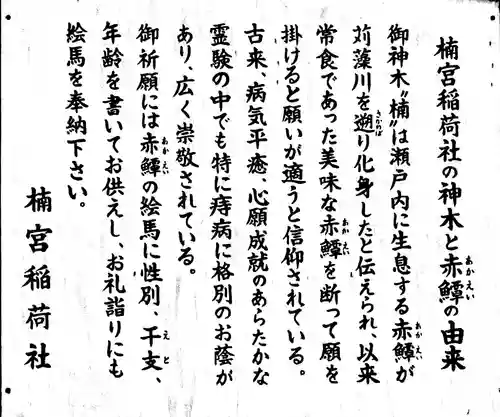 楠宮稲荷社の神木と赤鱏の由来
御神木〝楠〟は瀬戸内に生息する赤鱏が
苅藻川を遡り化身したと伝えられ、以来
常食であった美味な赤鱏を断って願を
掛けると願いが適うと信仰されている。
古来、病気平癒、心願成就のあらたかな
霊験の中でも特に痔病に格別のお蔭が
あり、広く崇敬されている。
御祈願には赤鱏の絵馬に性別、干支、
年齢を書いてお供えし、お礼詣りにも
絵馬を奉納下さい。
楠宮稲荷社